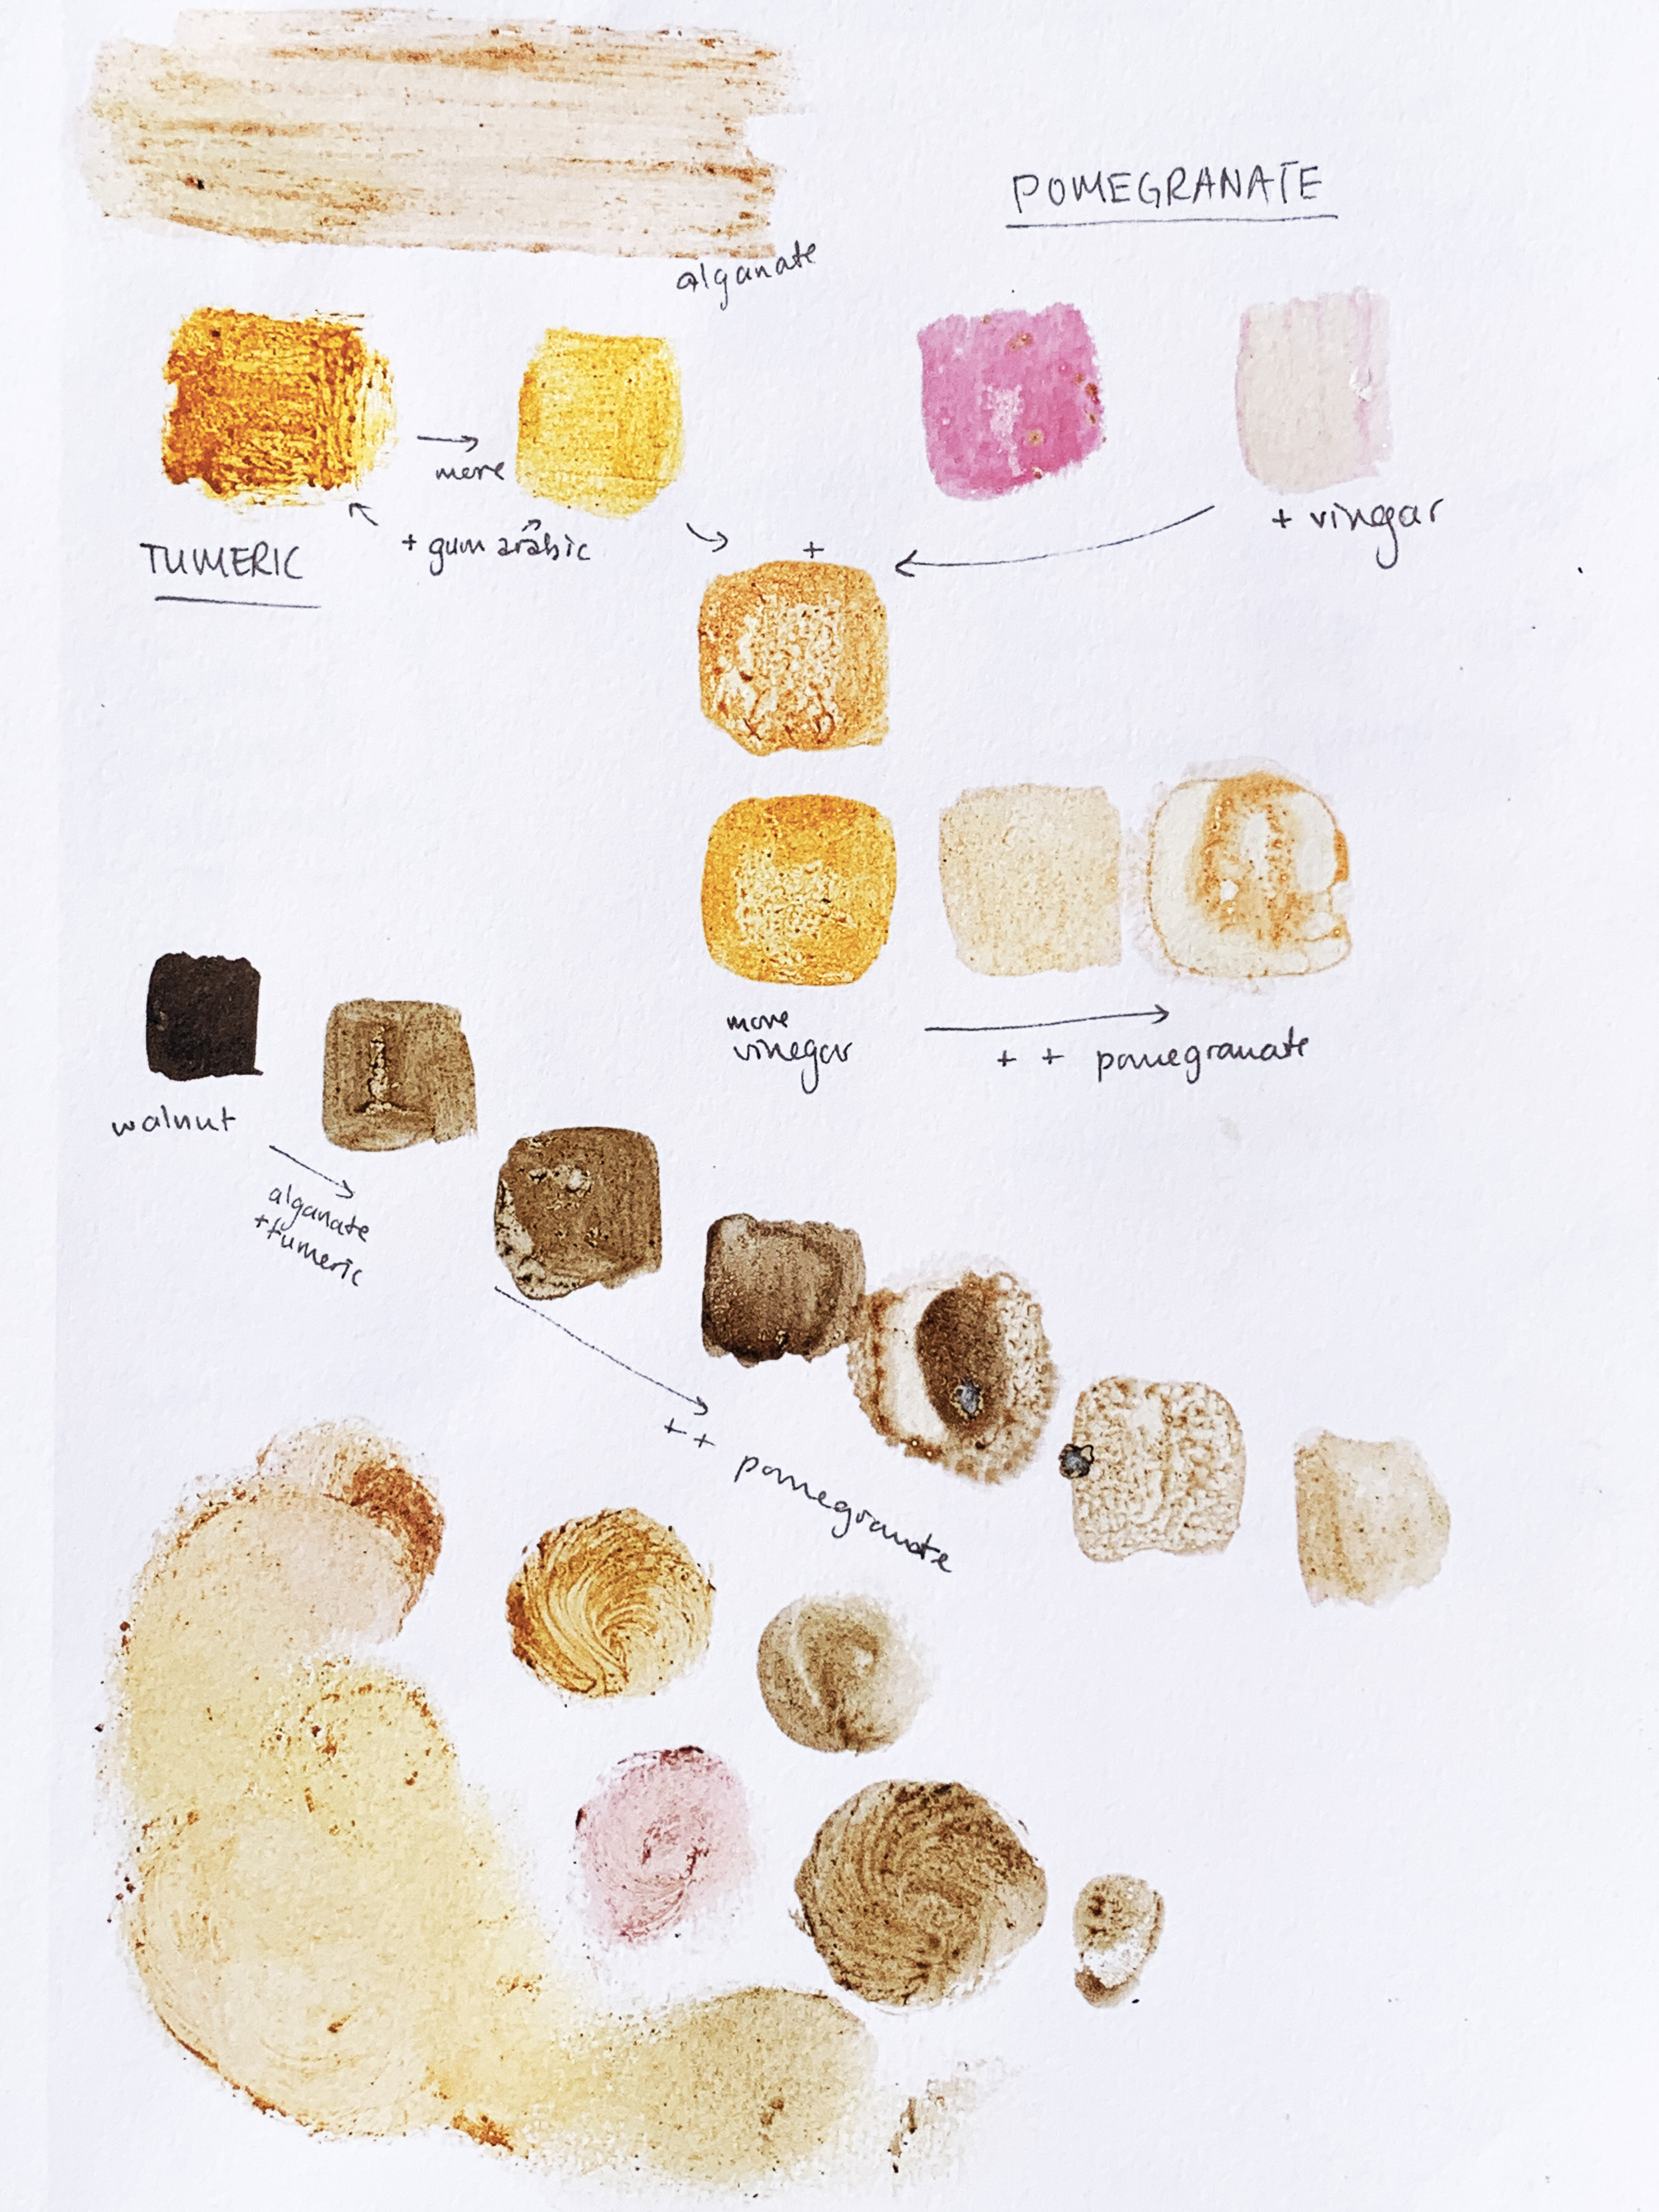 alganate
POMEGRANATE
more
+ gum arabic
TUMERIC
+ vingar
+
more
vinegar
+ + pomegranate
walnut
alganate
+tumeric
++ pomegranate